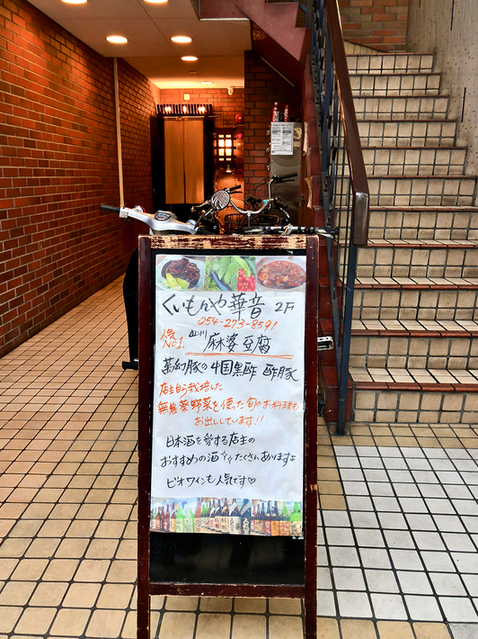 くいもんや華音 2F
054-273-8591
人気No.1 四川麻婆豆腐
萬幻豚の中国黒酢酢豚
店主自ら栽培した
無農薬野菜を使った旬のお料理を
お出ししています!!
日本酒を愛する店主の
おすすめの酒たくさんあります
ビオワインも人気です♡